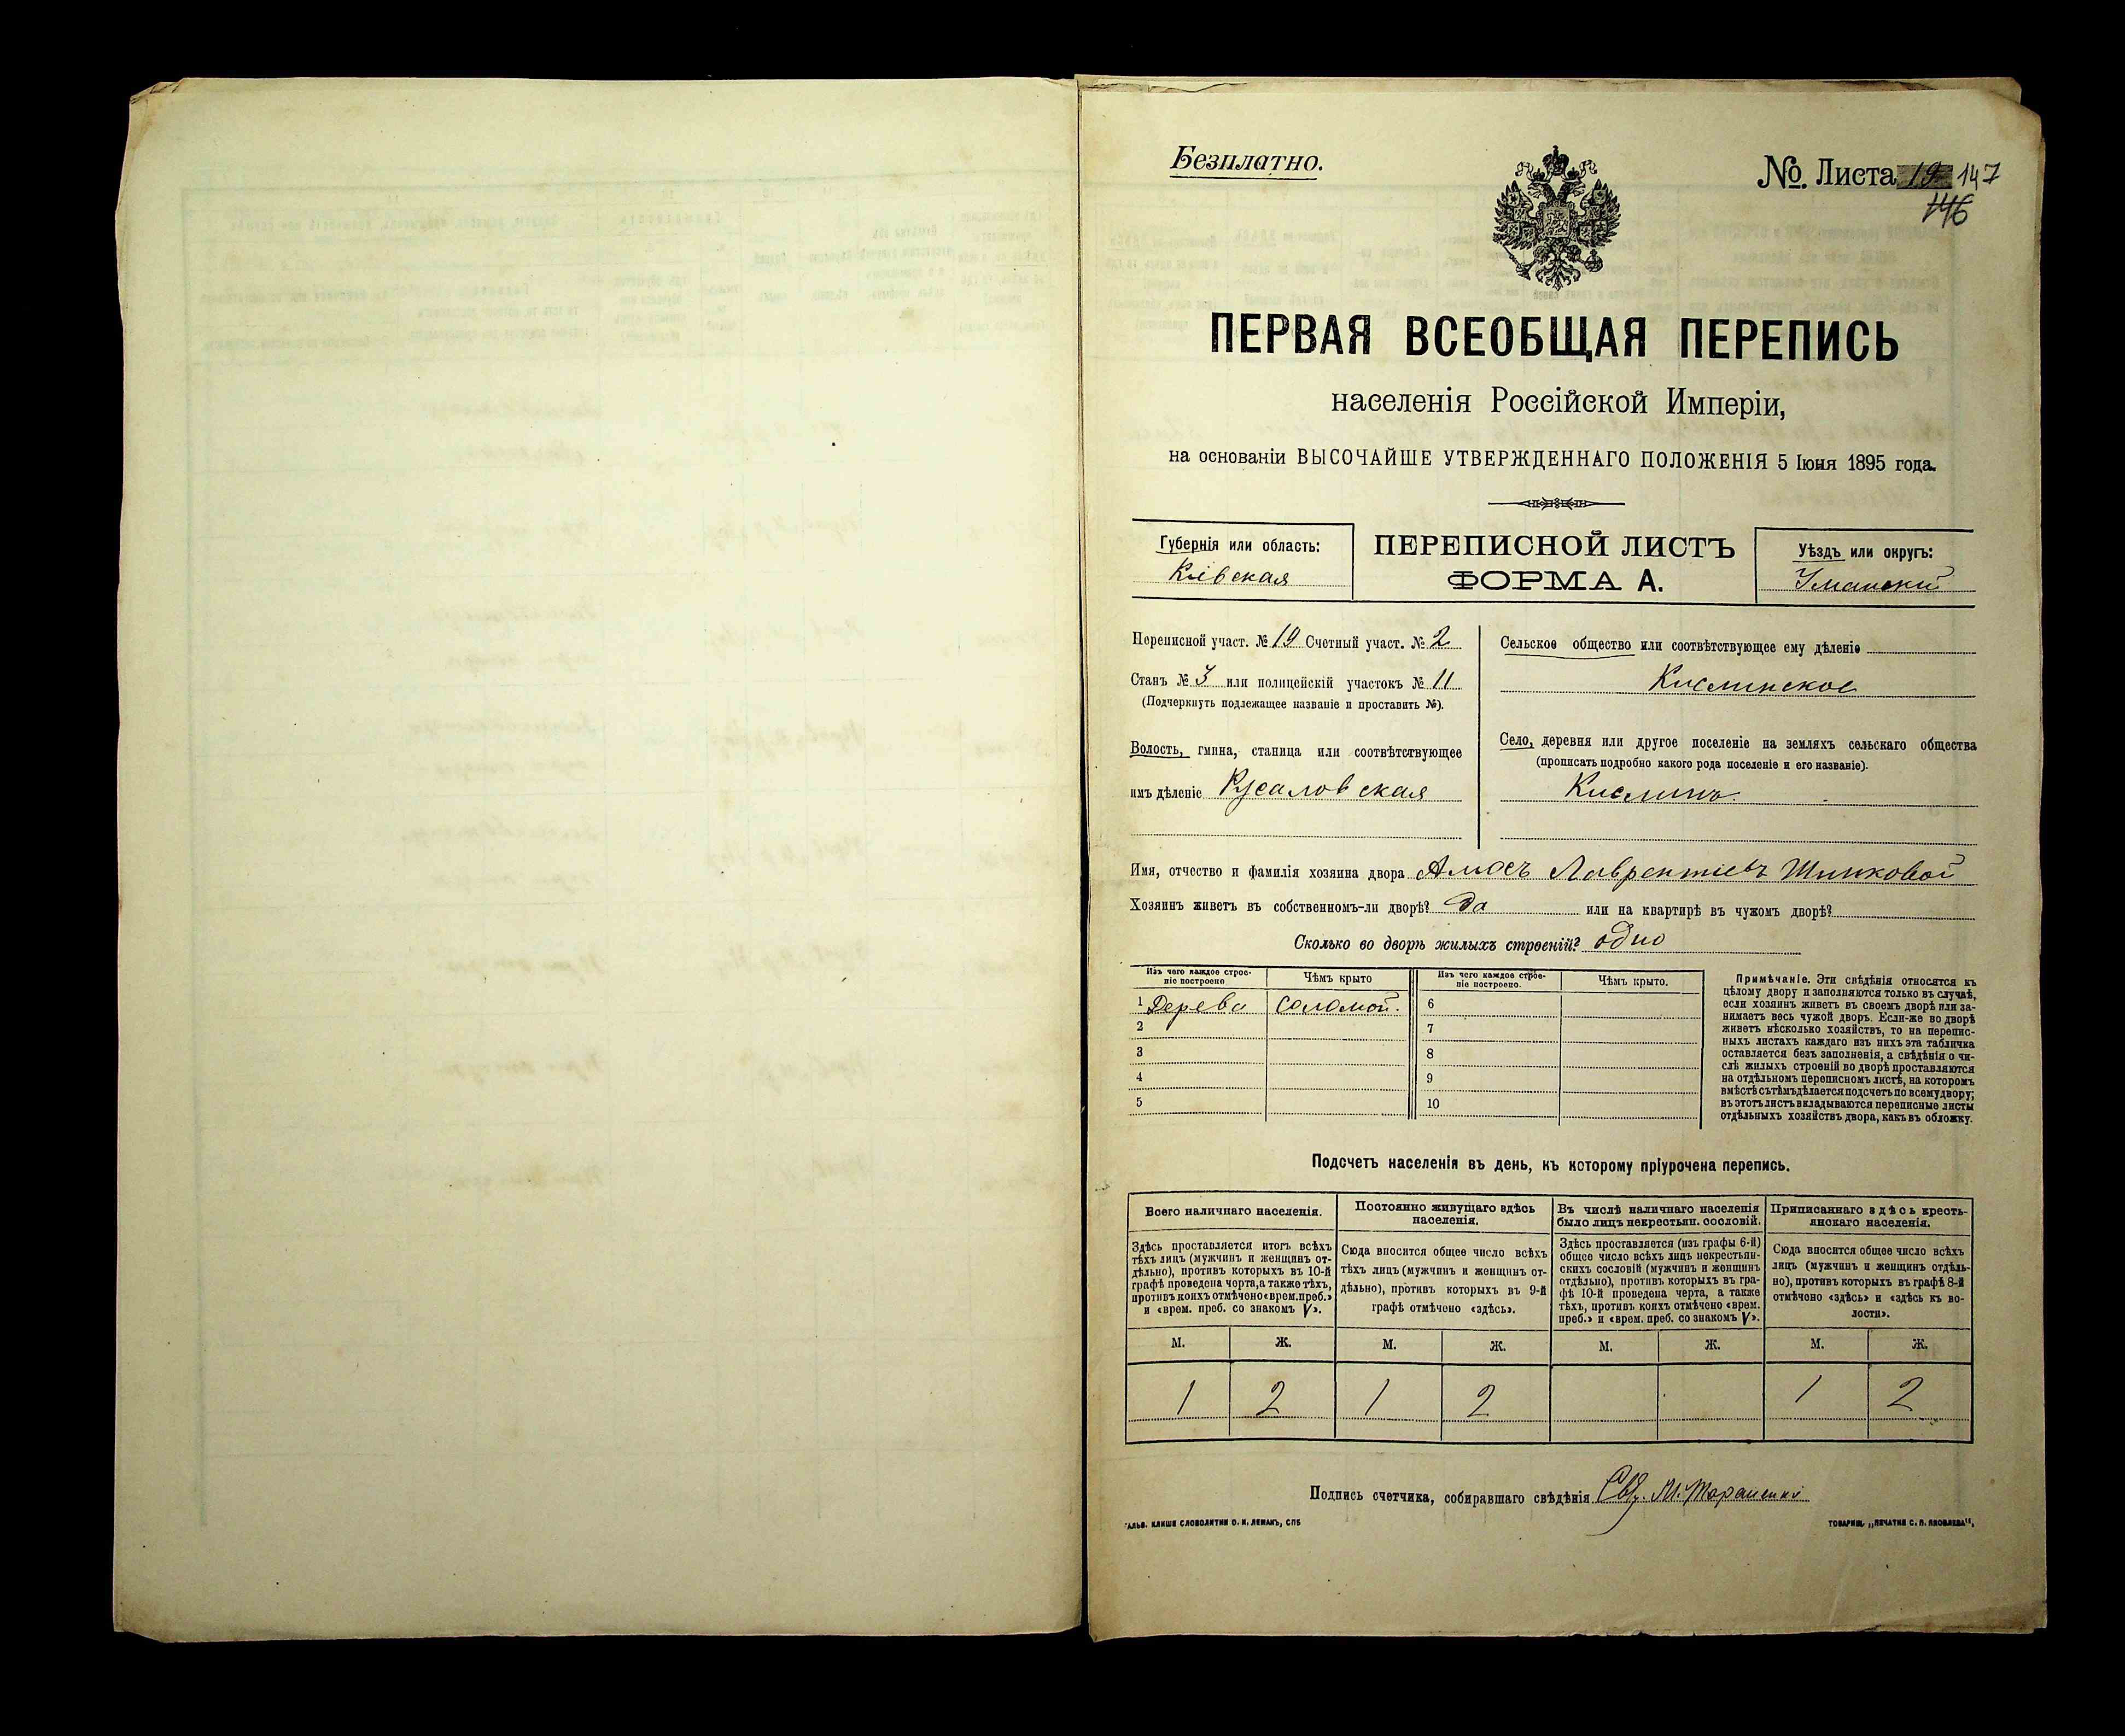 Безплатно.
№. Листа 19 147
146
ПЕРВАЯ ВСЕОБЩАЯ ПЕРЕПИСЬ
населенія Россійской Имперіи,
на основаніи ВЫСОЧАЙШЕ УТВЕРЖДЕННАГО ПОЛОЖЕНІЯ 5 Іюня 1895 года.
Губернія или область:
Кіевская
ПЕРЕПИСНОЙ ЛИСТЪ
ФОРМА А.
Уѣздъ или округъ:
Уманскій
Переписной участ. № 19 Счетный участ. № 2
Станъ № 3 или полицейскій участокъ № 11
(Подчеркнуть подлежащее названіе и проставить №).
Волость, гмина, станица или соотвѣтствующее
имъ дѣленіе Русаловская
Сельское общество или соотвѣтствующее ему дѣленіе
Кислинское
Село, деревня или другое поселеніе на земляхъ сельскаго общества
(прописать подробно какого рода поселеніе и его названіе).
Кислинъ.
Имя, отчество и фамилія хозяина двора Амосъ Лаврентіевъ Шинковой
Хозяинъ живетъ въ собственномъ-ли дворѣ? да или на квартирѣ въ чужомъ дворѣ?
Сколько во дворѣ жилыхъ строеній? одно
Изъ чего каждое строе-
ніе построено
Чѣмъ крыто
Изъ чего каждое строе-
ніе построено.
Чѣмъ крыто.
1 Дерева Соломой. 6
2 7
3 8
4 9
5 10
Примѣчаніе. Эти свѣдѣнія относятся къ
цѣлому двору и заполняются только въ случаѣ,
если хозяинъ живетъ въ своемъ дворѣ или за-
нимаетъ весь чужой дворъ. Если-же во дворѣ
живетъ нѣсколько хозяйствъ, то на перепис-
ныхъ листахъ каждаго изъ нихъ эта табличка
оставляется безъ заполненія, а свѣдѣнія о чи-
слѣ жилыхъ строеній во дворѣ проставляются
на отдѣльномъ переписномъ листѣ, на которомъ
вмѣстѣ съ тѣмъ дѣлается подсчетъ по всему двору;
въ этотъ листъ вкладываются переписные листы
отдѣльныхъ хозяйствъ двора, какъ въ обложку.
Подсчетъ населенія въ день, къ которому пріурочена перепись.
Всего наличнаго населенія.
Здѣсь проставляется итогъ всѣхъ
тѣхъ лицъ (мужчинъ и женщинъ от-
дѣльно), противъ которыхъ въ 10-й
графѣ проведена черта, а также тѣхъ,
противъ коихъ отмѣчено «врем. преб.»
и «врем. преб. со знакомъ V».
Постоянно живущаго здѣсь
населенія.
Сюда вносится общее число всѣхъ
тѣхъ лицъ (мужчинъ и женщинъ от-
дѣльно), противъ которыхъ въ 9-й
графѣ отмѣчено «здѣсь».
Въ числѣ наличнаго населенія
было лицъ некрестьян. сословій.
Здѣсь проставляется (изъ графы 6-й)
общее число всѣхъ лицъ некрестьян-
скихъ сословій (мужчинъ и женщинъ
отдѣльно), противъ которыхъ въ гра-
фѣ 10-й проведена черта, а также
тѣхъ, противъ коихъ отмѣчено «врем.
преб.» и «врем. преб. со знакомъ V».
Приписаннаго здѣсь кресть-
янскаго населенія.
Сюда вносится общее число всѣхъ
лицъ (мужчинъ и женщинъ отдѣль-
но), противъ которыхъ въ графѣ 8-й
отмѣчено «здѣсь» и «здѣсь къ во-
лости».
М. Ж. М. Ж. М. Ж. М. Ж.
1 2 1 2 1 2
Подпись счетчика, собиравшаго свѣдѣнія М. Тараненко
ГАЛЬВ. КЛИШЕ СЛОВОЛИТНИ О. И. ЛЕМАНЪ, СПБ
ТОВАРИЩ. „ПЕЧАТНЯ С. П. ЯКОВЛЕВА“,